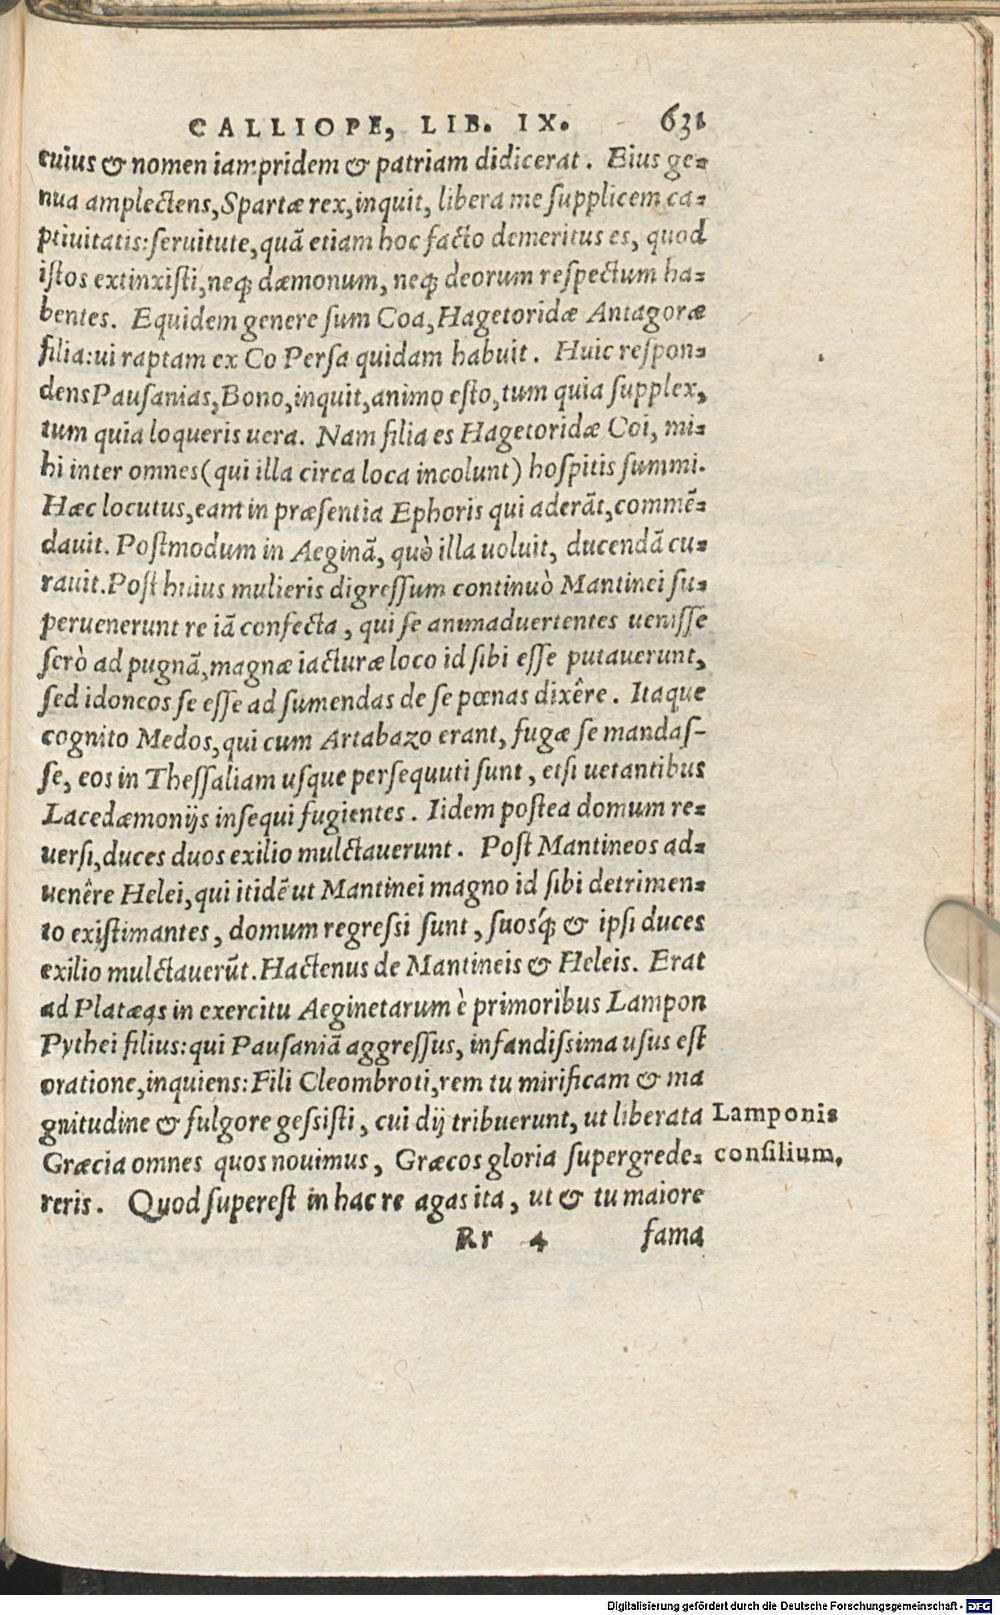 CALLIOPE, LIB. IX. 631
cuius & nomen iampridem & patriam didicerat. Eius ge-
nua amplectens, Spartæ rex, inquit, libera me ſupplicem ca-
ptiuitatis: ſeruitute, quã etiam hoc facto demeritus es, quod
iſtos extinxiſti, neq; dæmonum, neq; deorum reſpectum ha-
bentes. Equidem genere ſum Coa, Hagetoridæ Antagoræ
filia: ui raptam ex Co Perſa quidam habuit. Huic reſpon-
dens Pauſanias, Bono, inquit, animo eſto, tum quia ſupplex,
tum quia loqueris uera. Nam filia es Hagetoridæ Coi, mi-
hi inter omnes (qui illa circa loca incolunt) hoſpitis ſummi.
Hæc locutus, eam in præſentia Ephoris qui aderãt, commẽ-
dauit. Poſtmodum in Aeginã, quò illa uoluit, ducendã cu-
rauit. Poſt huius mulieris digreſſum continuò Mantinei ſu-
peruenerunt re iã confecta, qui ſe animaduertentes ueniſſe
ſerò ad pugnã, magnæ iacturæ loco id ſibi eſſe putauerunt,
ſed idoneos ſe eſſe ad ſumendas de ſe pœnas dixêre. Itaque
cognito Medos, qui cum Artabazo erant, fugæ ſe mandaſ-
ſe, eos in Theſſaliam uſque perſequuti ſunt, etſi uetantibus
Lacedæmonijs inſequi fugientes. Iidem poſtea domum re-
uerſi, duces duos exilio mulctauerunt. Poſt Mantineos ad-
uenêre Helei, qui itidẽ ut Mantinei magno id ſibi detrimen-
to exiſtimantes, domum regreſſi ſunt, ſuosq́; & ipſi duces
exilio mulctauerũt. Hactenus de Mantineis & Heleis. Erat
ad Platæas in exercitu Aeginetarum è primoribus Lampon
Pythei filius: qui Pauſaniã aggreſſus, infandiſsima uſus eſt
oratione, inquiens: Fili Cleombroti, rem tu mirificam & ma
gnitudine & fulgore geſsiſti, cui dij tribuerunt, ut liberata Lamponis
Græcia omnes quos nouimus, Græcos gloria ſupergrede- conſilium.
reris. Quod ſupereſt in hac re agas ita, ut & tu maiore
Rr 4 fama
Digitalisierung gefördert durch die Deutsche Forschungsgemeinschaft - DFG